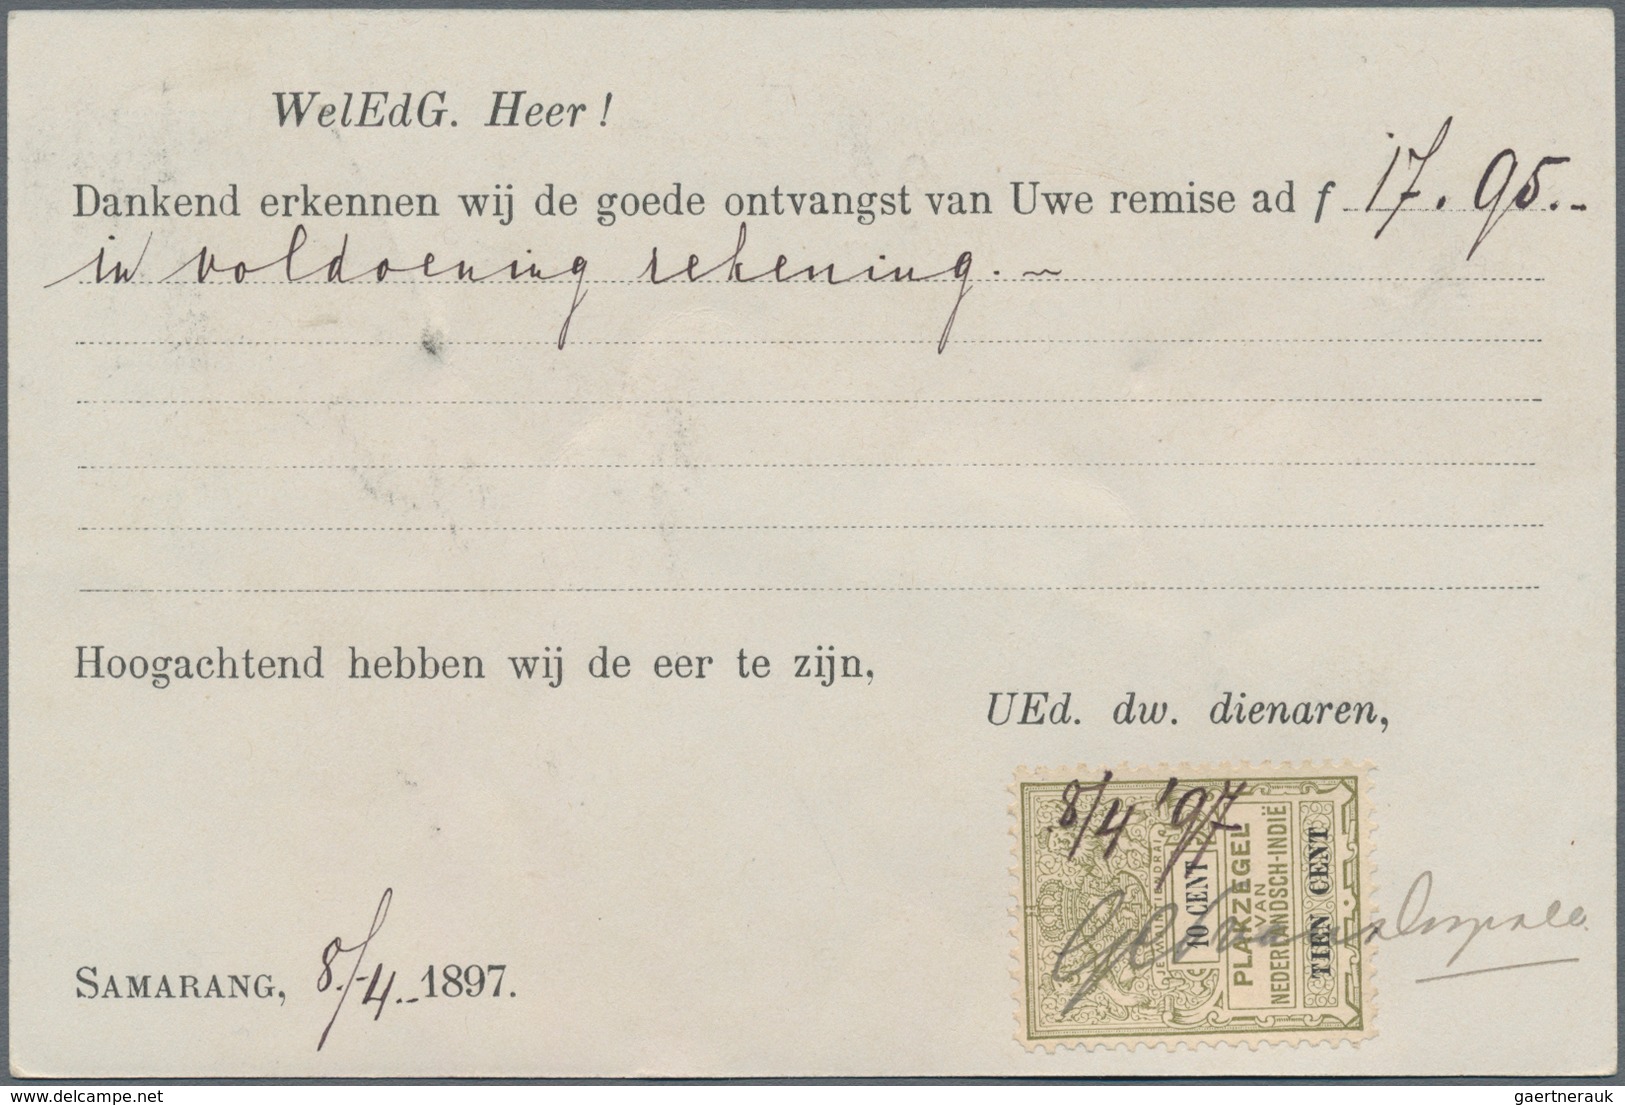 WelEdG. Heer!
Dankend erkennen wij de goede ontvangst van Uwe remise ad f 17.95.-
in voldoening rekening. ~
Hoogachtend hebben wij de eer te zijn,
UEd. dw. dienaren,
8/4 '97
JE MAINTIENDRAI
10 CENT
PLAKZEGEL
VAN
NEDERLANDSCH-INDIË
TIEN CENT
SAMARANG, 8/-4.-1897.
www.delcampe.net
gaertnerauk